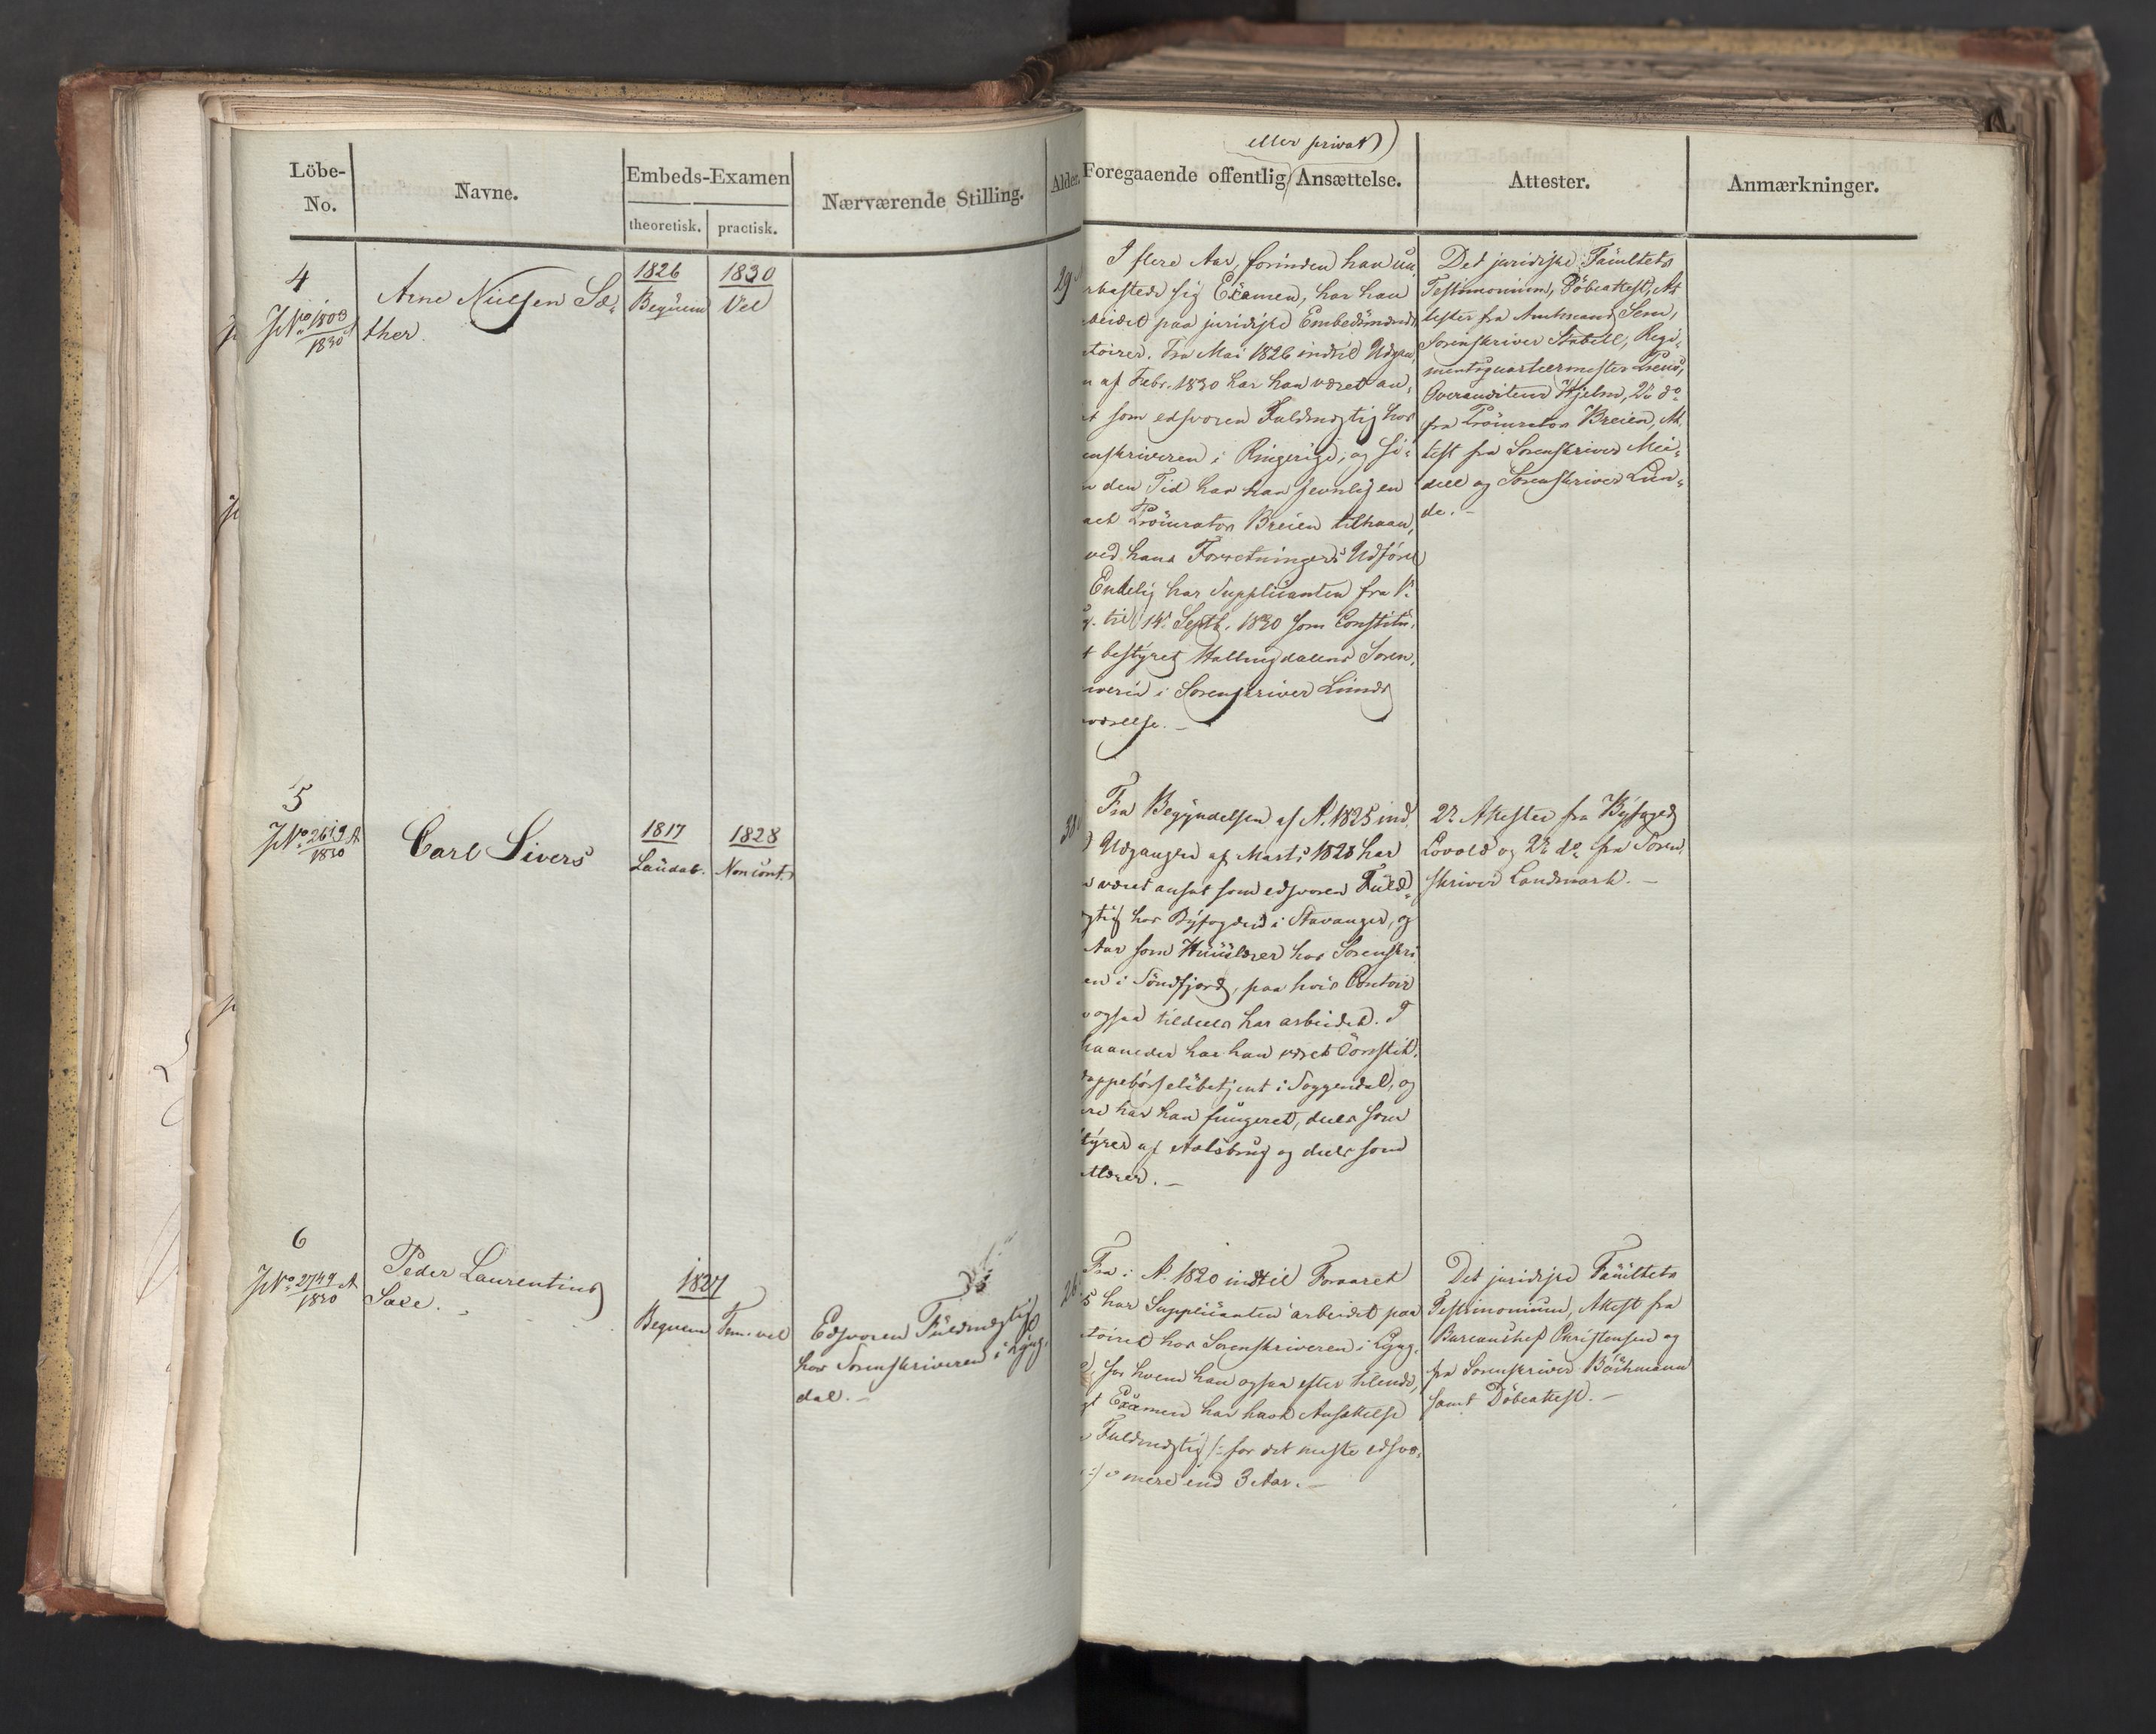 Löbe-
No.
Navne.
Embeds-Examen
theoretisk. practisk.
Nærværende Stilling.
Alder.
eller privat
Foregaaende offentlig Ansættelse.
Attester.
Anmærkninger.
4
JNo 1803
1830
Arne Nielsen Sæ-
ther.
1826
Beqüem
1830
Vel
29
I flere Aar, forinden han un-
kastede sig Examen, har han
beidet paa juridiske Embedsmænds
toirer. Fra Mai 1826 indtil Udgan-
n af Febr. 1830 har han været an-
t som edsvoren Fuldmægtig hos
enskriveren i Ringerige; og si-
n den Tid har han jevnlig en
aet Procurator Breien tilhaan,
ved hans Forretningers Udförel
Endelig har Supplicanten fra
til 14 Septb. 1830 som Constitu-
t bestyret Hallingdalens Soren-
iverie i Sorenskriver Lunds
værelse. -
Det juridiske Facultets
Testimonium, Döbeattest, At-
tester fra Amtmand Sem,
Sorenskriver Stabell, Regi-
mentsquarteermester
Overauditeur Hjelm, 2 do
fra Procurator Breien, At-
test fra Sorenskriver Mei-
dell og Sorenskriver Lun-
de. -
5
JNo 2619 A
1830
Carl Sivers
1817
Laudab.
1828
Non cont.
38
Fra Begyndelsen af A. 1825 ind-
Udgangen af Marts 1828 har
n været ansat som edsvoren Fuld-
gtig hos Byfogden i Stavanger, og
Aar som Huuslærer hos Sorenskri
en i Söndfjord, paa hvis Contoir
n ogsaa tildeels har arbeidet. I
maaneder har han været Constit.
ppebörselsbetjent i Soggendal, og
re har han fungeret, deels som
tyrer af Avlsbrug og deels som
lærer. -
2de Attester fra Byfoged
Lövold og 2de do fra Soren-
skriver Landmark. -
6
JNo 2749 A
1830
Peder Laurentius
Saxe.
1827
Beqvem Tem. vel
Edsvoren Fuldmægtig
hos Sorenskriveren i Lyng-
dal. -
26
Fra i A. 1820 indtil Foraaret
5 har Supplicanten arbeidet paa
toiret hos Sorenskriveren i Lyng-
hos hvem han ogsaa efter tilende-
gt Examen har havt Ansættelse
Fuldmægtig /: for det meste edsvo-
:/ i mere end 3 Aar. -
Det juridiske Facultets
Testimonium, Attest fra
Bureauchef Christensen og
fra Sorenskriver Böchmann
samt Döbeattest. -